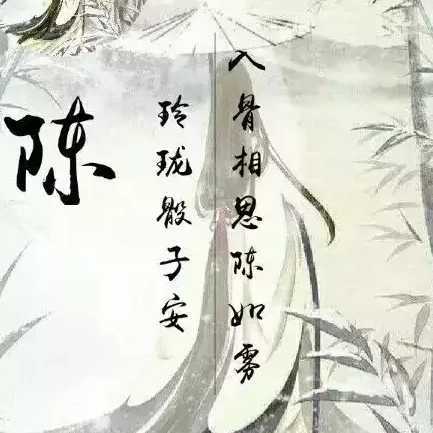 陈
玲珑骰子安
入骨相思陈如雾